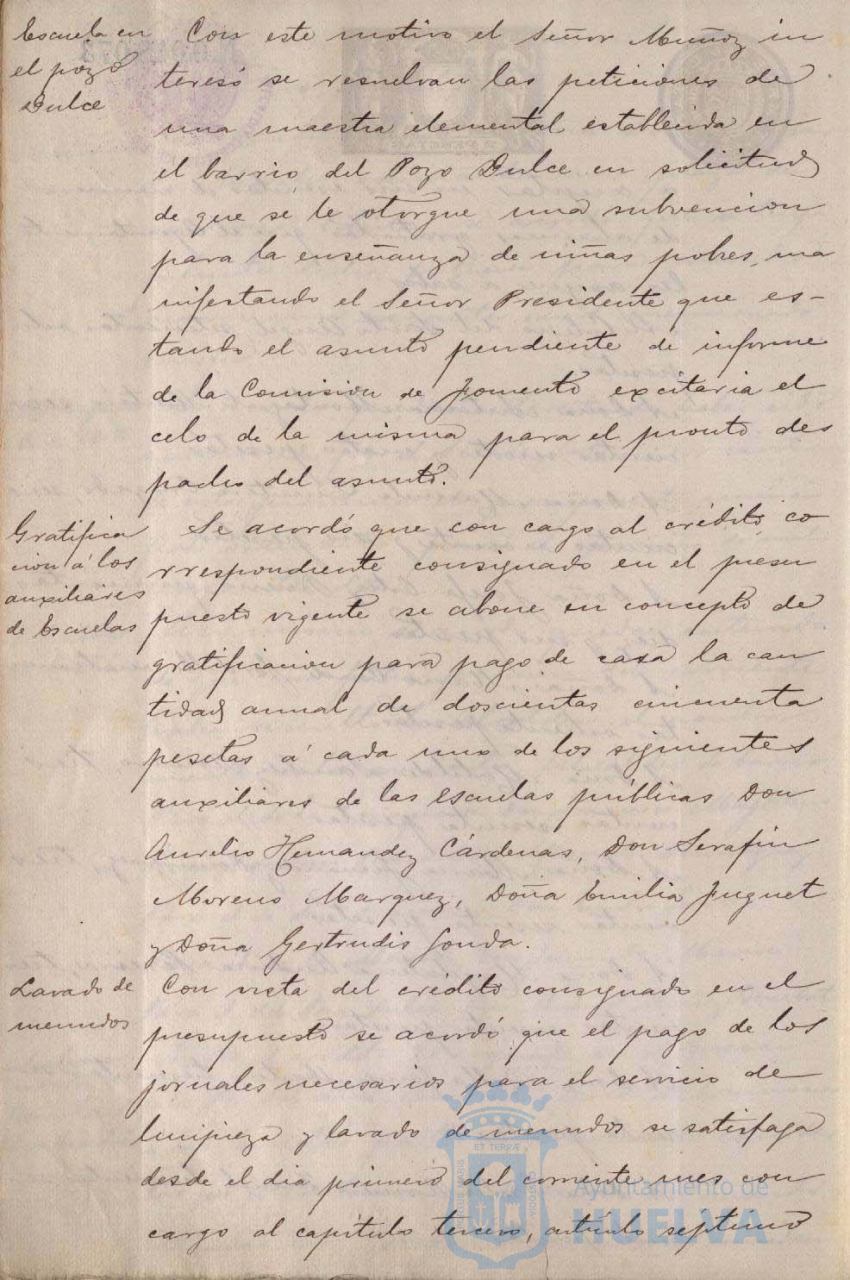 Escuela en
el pozo
Dulce
Con este motivo el Señor Muñoz in
teresó se resuelvan las peticiones de
una maestra elemental establecida en
el barrio del Pozo Dulce en solicitud
de que se le otorgue una subvencion
para la enseñanza de niñas pobres, ma
nifestando el Señor Presidente que es-
tando el asunto pendiente de informe
de la Comision de Fomento excitaria el
celo de la misma para el pronto des
pacho del asunto.
Gratifica
cion á los
auxiliares
de Escuelas
Se acordó que con cargo al crédito co
rrespondiente consignado en el presu
puesto vigente se abone en concepto de
gratificacion para pago de casa la can
tidad annal de doscientas cincuenta
pesetas á cada uno de los siguientes
auxiliares de las escuelas públicas Don
Aurelio Hernandez Cárdenas, Don Serafin
Moreno Marquez, Doña Emilia Juguet
y Doña Gertrudis
Lavado de
menudos
Con vista del crédito consignado en el
presupuesto se acordó que el pago de los
jornales necesarios para el servicio de
limpieza y lavado de menudos se satisfaga
desde el dia primero del corriente mes con
cargo al capítulo tercero, artículo septimo
Ayuntamiento de
HUELVA